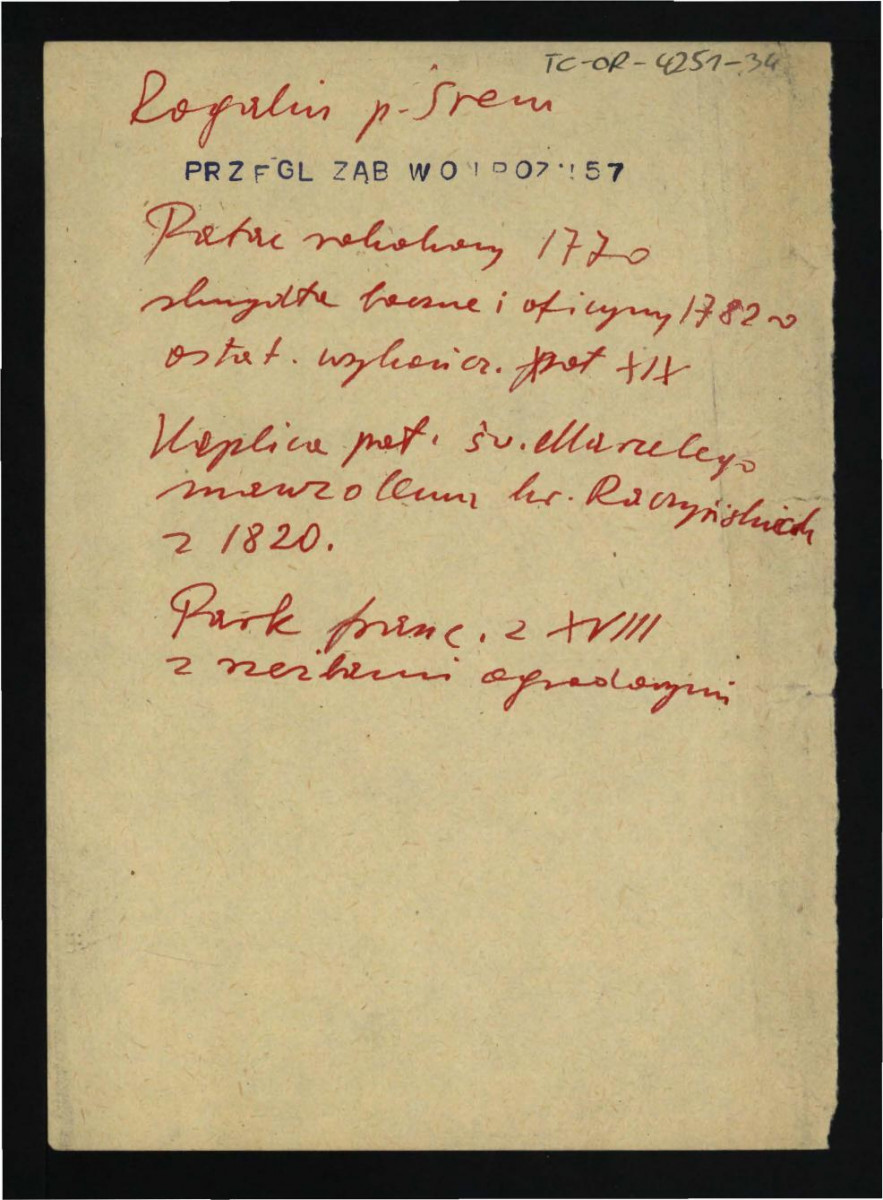 TC-OR-4251-34
Rogalin p. Śrem
PRZEGL ZĄB WOJ POZ 57
Pałac rokokowy 1770
skrzydła boczne i oficyny 1782
ostat. wykończ. poł XIX
Kaplica pat. św. Marcelego
mauzoleum hr. Raczyńskich
z 1820.
Park franc. z XVIII
z rzeźbami ogrodowymi